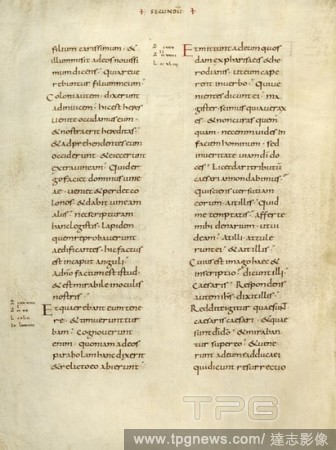 SECUNDU
filium carissimum · &
illummisit adeos nouissi
mum dicens · Quiareue
rebuntur filiummeum ·
Coloniautem dixerunt
adinuicem · hicest heres
uenite occidamus eum ·
& nostraerit hereditas ·
& adprehendentes eum
occiderunt · & eiecerunt
extrauineam · Quider
gofaciet dominus uine
ae · ueniet & perdet co
lonos · & dabit uineam
aliis · necscripturam
hanclegistis · Lapidem
quemreprobauerunt
aedificantes · hicfactus
est incaput anguli ·
adño factum est istud ·
& est mirabile inoculis
nostris ·
Et querebant eum tene
re · & timuerunt tur
bam · Cognouerunt
enim · quoniam adeos
parabolamhanc dixerit
& relicto eo abierunt ·
Et mittunt adeum quos
dam expharisaeis & he
rodianis · uteum cape
rent inuerbo · Quiue
nientes dicunt ei · ma
gister scimus quiauerax
es · & noncuras quem
quam · necenimuides in
faciem hominum · sed
inueritate uiam dī do
ces · Licet dari tributū
caesari annondabimus ·
Quisciens uersutiam
eorum · ait illis · Quid
me temptatis · afferte
mihi denarium · ut ui
deam · Atilli · attule
runt ei · & ait illis ·
Cuius est imago haec &
inscriptio · dicunt illi
Caesaris · Respondens
autem ihs dixit illis ·
Reddite igitur quae sunt
caesaris caesari · & quae
sunt dī dō · & miraban
tur super eo · & uene
runt adeum sadducaei
qui dicunt resurrectio
TPG
www.tpgnews.com / 達志影像